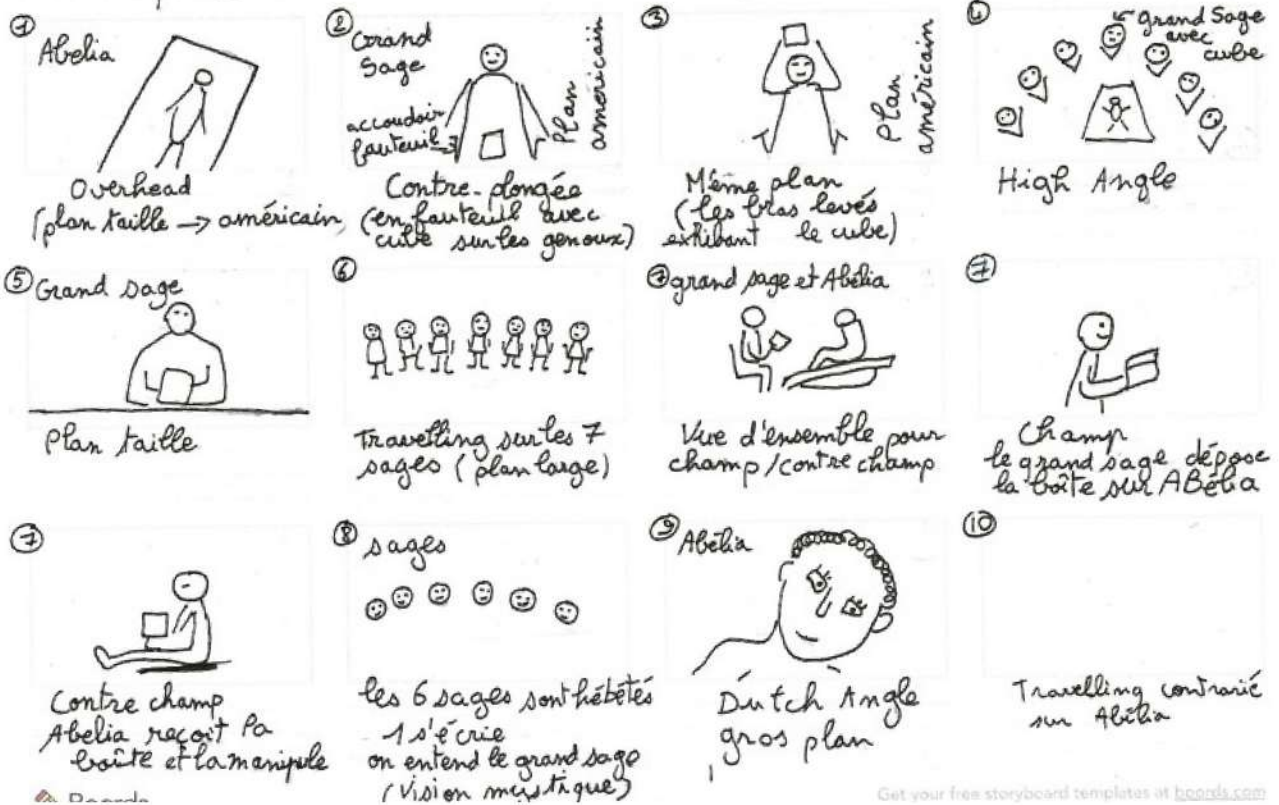 ①
Abélia
Overhead
(plan taille → américain)
②
Grand
Sage
accoudoir
fauteuil
Plan
américain
Contre-plongée
(en fauteuil avec
cube sur les genoux)
③
Plan
américain
Même plan
(les bras levés
exhibant le cube)
④
grand Sage
avec
cube
High Angle
⑤ Grand sage
Plan taille
⑥
Travelling sur les 7
sages (plan large)
⑦ grand sage et Abélia
Vue d'ensemble pour
champ/contre champ
⑦
Champ
le grand sage dépose
la boîte sur Abélia
⑦
Contre champ
Abelia reçoit la
boîte et la manipule
⑧
sages
les 6 sages sont hébétés
1 s'écrie
on entend le grand sage
(vision mystique)
⑨ Abélia
Dutch Angle
gros plan
⑩
Travelling contrarié
sur Abélia
Boords
Get your free storyboard templates at boords.com